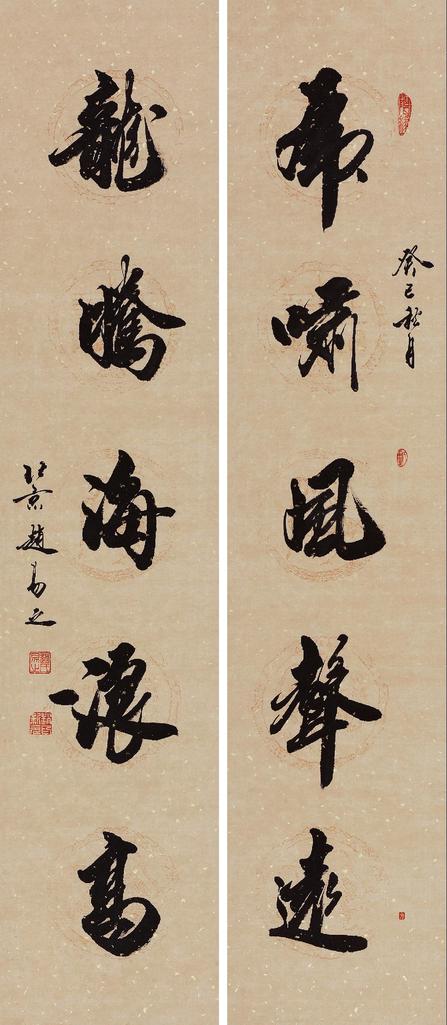 虎嘯風聲遠
癸巳秋月
龍騰海浪高
北京趙易之